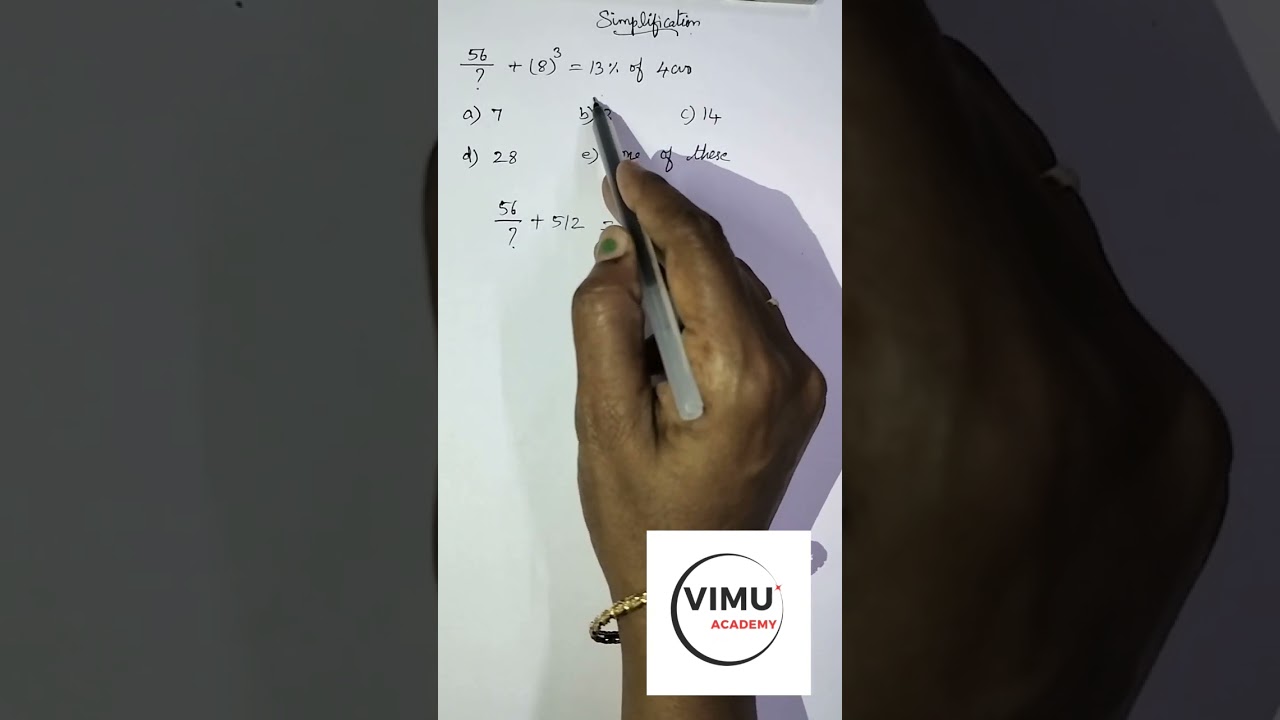 Simplification
56/? + (8)³ = 13% of 400
a) 7 b) c) 14
d) 28 e) of these
56/? + 512 =
VIMU
ACADEMY